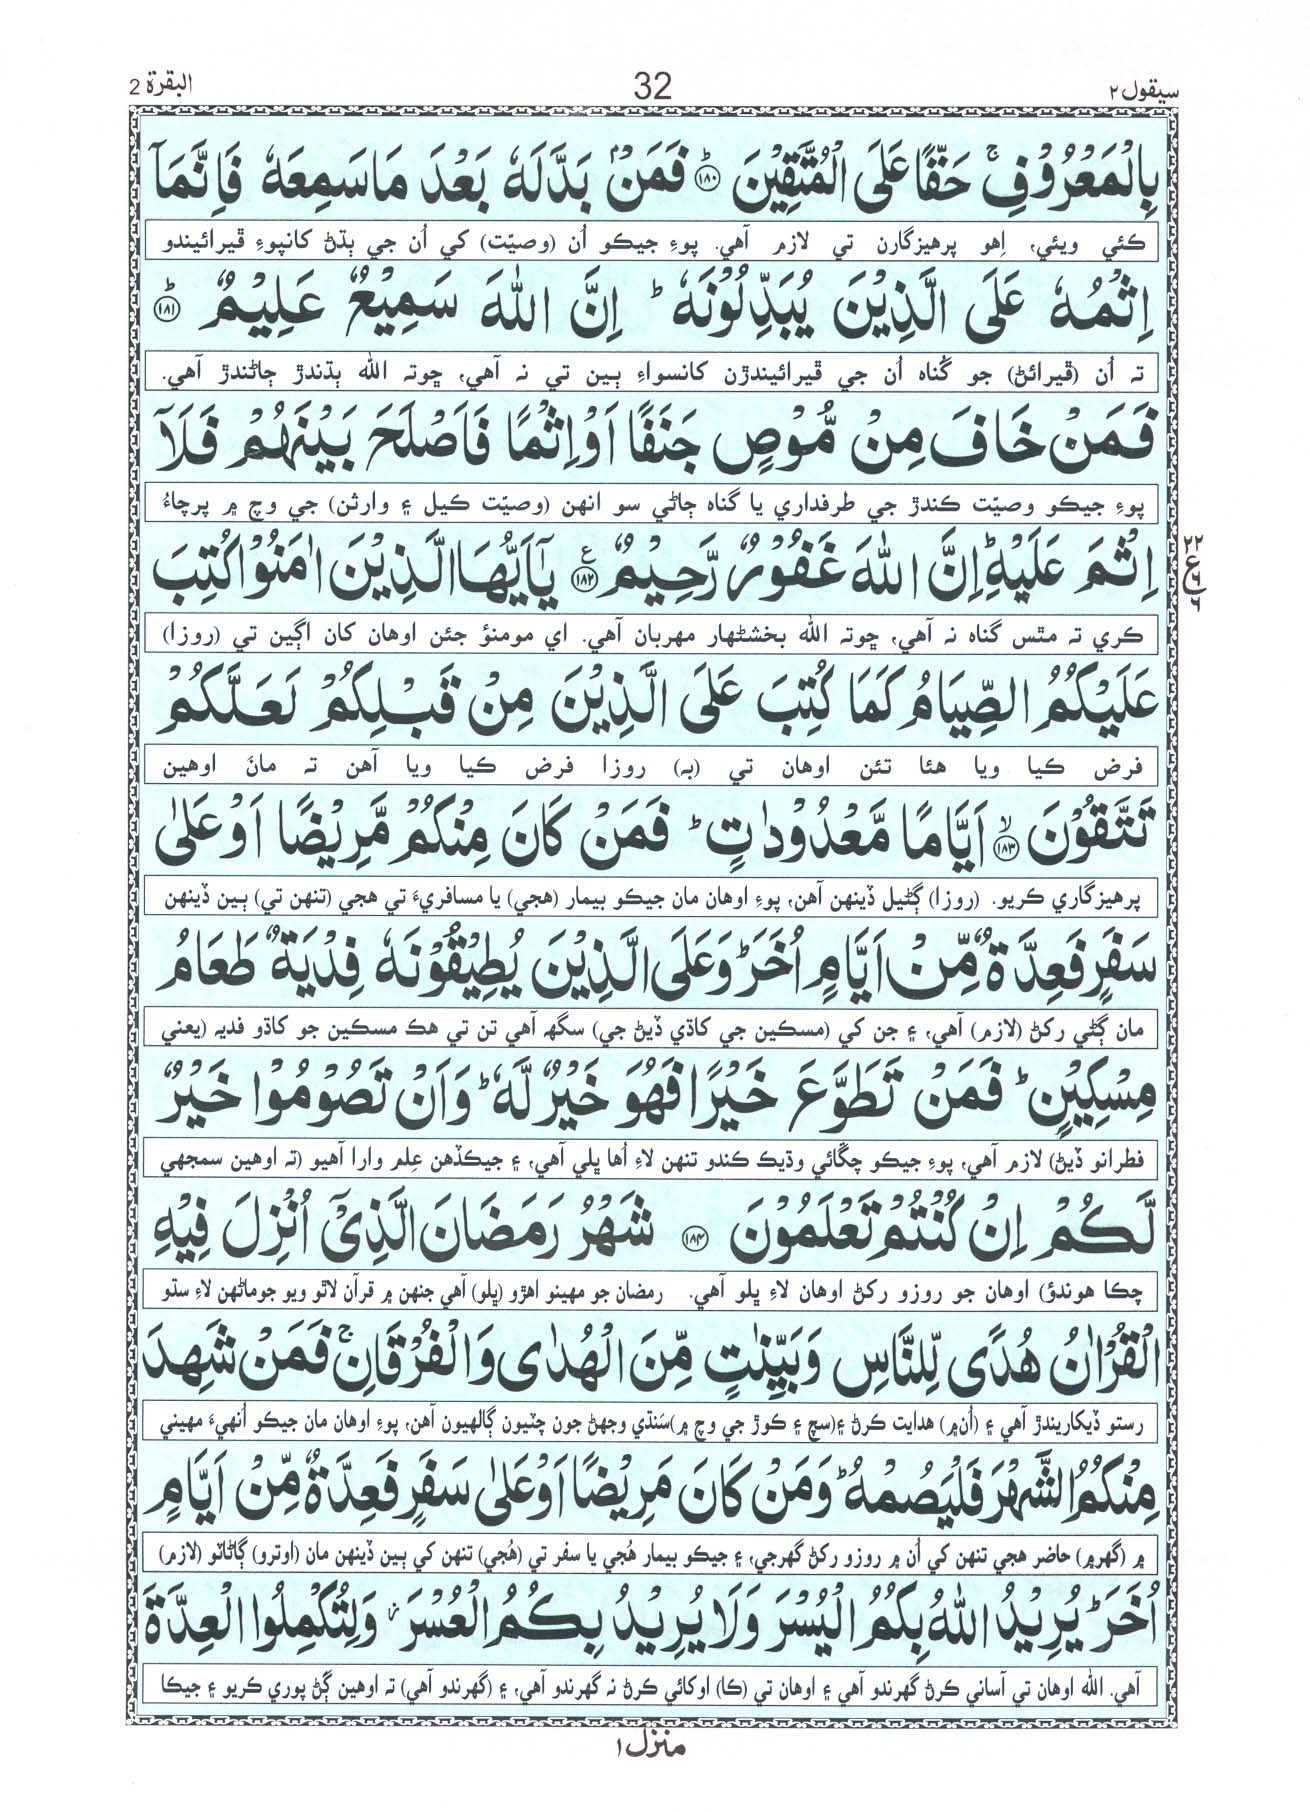 سيقول ٢ 32 البقرة 2
بِالْمَعْرُوْفِ ۚ حَقًّا عَلَى الْمُتَّقِيْنَ ؕ﴿۱۸۰﴾ فَمَنْۢ بَدَّلَهٗ بَعْدَ مَا سَمِعَهٗ فَاِنَّمَاۤ
ڪئي ويئي، اِهو پرهيزگارن تي لازم آهي. پوءِ جيڪو اُن (وصيّت) کي اُن جي ٻڌڻ کانپوءِ ڦيرائيندو
اِثْمُهٗ عَلَى الَّذِيْنَ يُبَدِّلُوْنَهٗ ؕ اِنَّ اللّٰهَ سَمِيْعٌ عَلِيْمٌ ؕ﴿۱۸۱﴾
ته اُن (ڦيرائڻ) جو گُناه اُن جي ڦيرائيندڙن کانسواءِ ٻين تي نہ آهي، ڇوتہ الله ٻڌندڙ ڄاڻندڙ آهي.
فَمَنْ خَافَ مِنْ مُّوْصٍ جَنَفًا اَوْ اِثْمًا فَاَصْلَحَ بَيْنَهُمْ فَلَاۤ
پوءِ جيڪو وصيّت ڪندڙ جي طرفداري يا گناه ڄاڻي سو انهن (وصيّت ڪيل ۽ وارثن) جي وچ ۾ پرچاءُ
اِثْمَ عَلَيْهِ ؕ اِنَّ اللّٰهَ غَفُوْرٌ رَّحِيْمٌ ﴿۱۸۲﴾ ع يٰۤاَيُّهَا الَّذِيْنَ اٰمَنُوْا كُتِبَ
٢٢ ع ٦ ٦
ڪري ته مٿس گناه نہ آهي، ڇوتہ الله بخشڻهار مهربان آهي. اي مومنؤ جئن اوهان کان اڳين تي (روزا)
عَلَيْكُمُ الصِّيَامُ كَمَا كُتِبَ عَلَى الَّذِيْنَ مِنْ قَبْلِكُمْ لَعَلَّكُمْ
فرض ڪيا ويا هئا تئن اوهان تي (بہ) روزا فرض ڪيا ويا آهن تہ مانَ اوهين
تَتَّقُوْنَ ۙ﴿۱۸۳﴾ اَيَّامًا مَّعْدُوْدٰتٍ ؕ فَمَنْ كَانَ مِنْكُمْ مَّرِيْضًا اَوْ عَلٰى
پرهيزگاري ڪريو. (روزا) ڳڻيل ڏينهن آهن، پوءِ اوهان مان جيڪو بيمار (هجي) يا مسافريءَ تي هجي (تنهن تي) ٻين ڏينهن
سَفَرٍ فَعِدَّةٌ مِّنْ اَيَّامٍ اُخَرَ ؕ وَعَلَى الَّذِيْنَ يُطِيْقُوْنَهٗ فِدْيَةٌ طَعَامُ
مان ڳڻي رکڻ (لازم) آهي، ۽ جن کي (مسڪين جي کاڌي ڏيڻ جي) سگهہ آهي تن تي هڪ مسڪين جو کاڌو فديہ (يعني
مِسْكِيْنٍ ؕ فَمَنْ تَطَوَّعَ خَيْرًا فَهُوَ خَيْرٌ لَّهٗ ؕ وَاَنْ تَصُوْمُوْا خَيْرٌ
فطرانو ڏيڻ) لازم آهي، پوءِ جيڪو چڱائي وڌيڪ ڪندو تنهن لاءِ اُها ڀلي آهي، ۽ جيڪڏهن عِلم وارا آهيو (تہ اوهين سمجهي
لَّكُمْ اِنْ كُنْتُمْ تَعْلَمُوْنَ ﴿۱۸۴﴾ شَهْرُ رَمَضَانَ الَّذِيْۤ اُنْزِلَ فِيْهِ
چڪا هوندؤ) اوهان جو روزو رکڻ اوهان لاءِ ڀلو آهي. رمضان جو مهينو اهڙو (ڀلو) آهي جنهن ۾ قرآن لاٿو ويو جوماڻهن لاءِ ستو
الْقُرْاٰنُ هُدًى لِّلنَّاسِ وَبَيِّنٰتٍ مِّنَ الْهُدٰى وَالْفُرْقَانِ ۚ فَمَنْ شَهِدَ
رستو ڏيکاريندڙ آهي ۽ (اُن۾) هدايت ڪرڻ ۽(سچ ۽ ڪوڙ جي وچ ۾)سَنڌي وجهڻ جون چٽيون ڳالهيون آهن، پوءِ اوهان مان جيڪو اُنهيءَ مهيني
مِنْكُمُ الشَّهْرَ فَلْيَصُمْهُ ؕ وَمَنْ كَانَ مَرِيْضًا اَوْ عَلٰى سَفَرٍ فَعِدَّةٌ مِّنْ اَيَّامٍ
۾ (گهر۾) حاضر هجي تنهن کي اُن ۾ روزو رکڻ گهرجي، ۽ جيڪو بيمار هُجي يا سفر تي (هُجي) تنهن کي ٻين ڏينهن مان (اوترو) ڳاڻاٽو (لازم)
اُخَرَ ؕ يُرِيْدُ اللّٰهُ بِكُمُ الْيُسْرَ وَلَا يُرِيْدُ بِكُمُ الْعُسْرَ ؗ وَلِتُكْمِلُوا الْعِدَّةَ
آهي. الله اوهان تي آساني ڪرڻ گهرندو آهي ۽ اوهان تي (ڪا) اوکائي ڪرڻ نہ گهرندو آهي، ۽ (گهرندو آهي) تہ اوهين ڳَڻ پوري ڪريو ۽ جيڪا
منزل ١